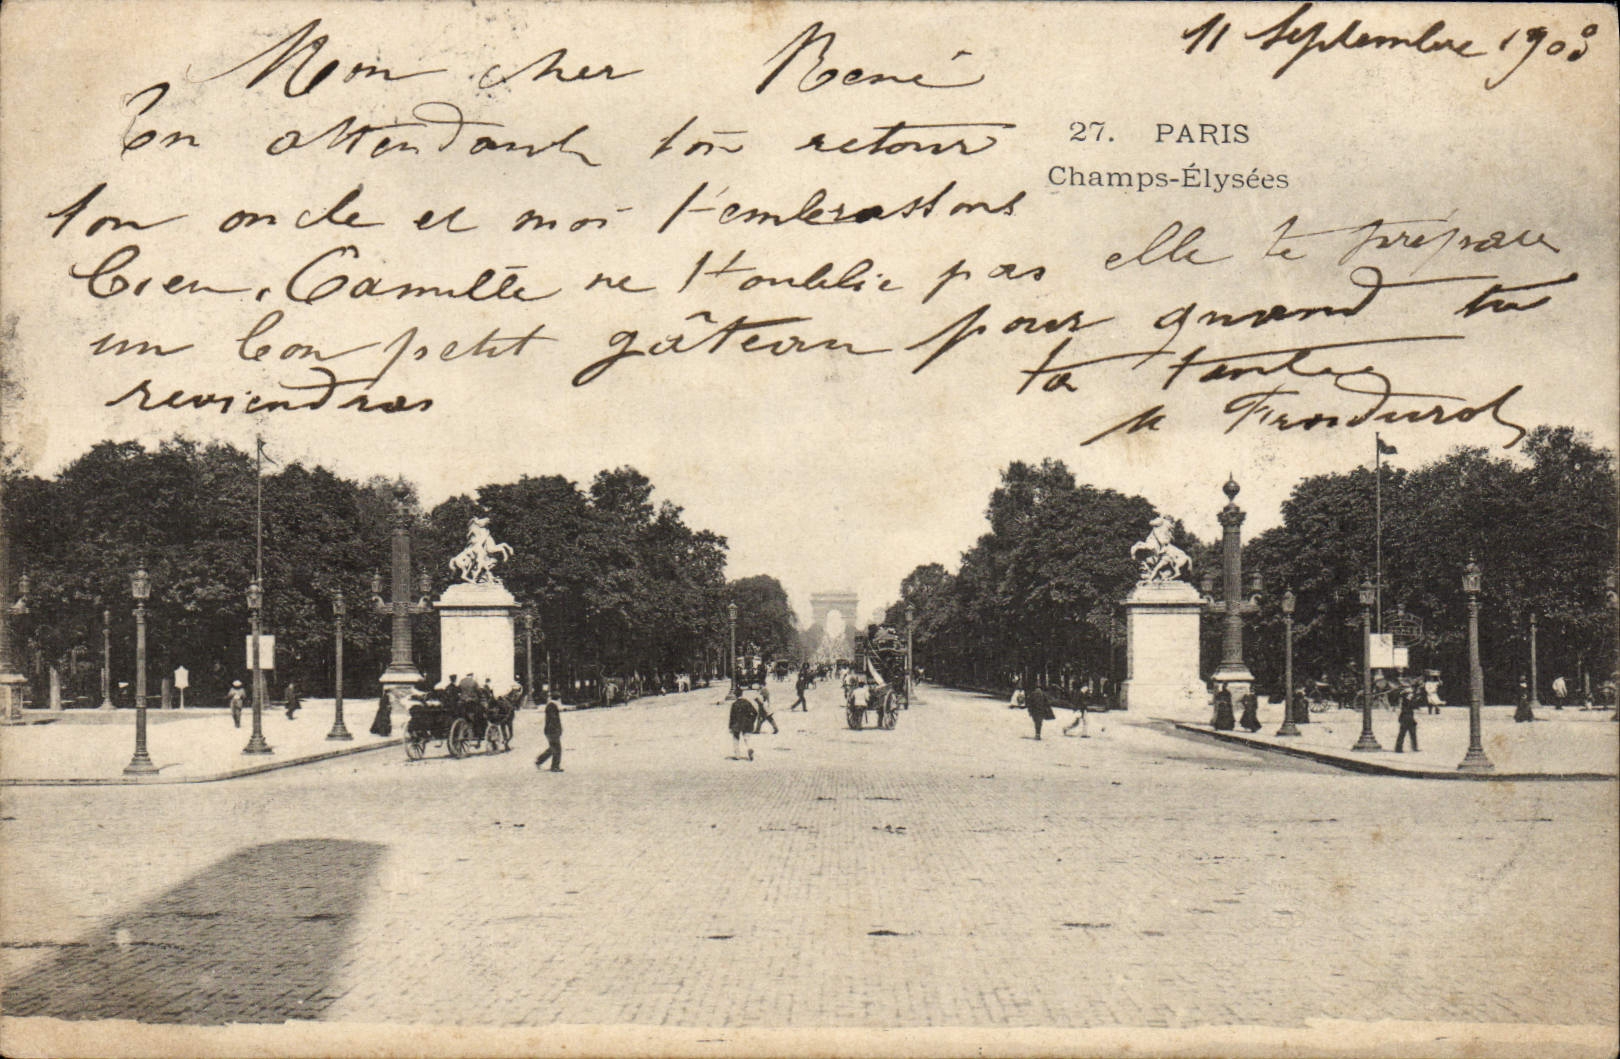 11 Septembre 1903
Mon cher René
En attendant ton retour
27. PARIS
Champs-Élysées
ton oncle et moi t'embrassons
bien. Camille ne t'oublie pas elle te prépare
un bon petit gâteau pour quand tu
reviendras
ta tante